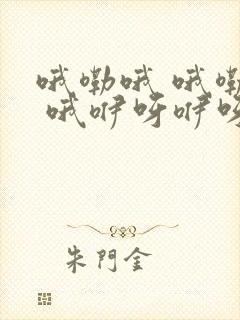 哦嘞哦 哦嘞
哦咿呀咿呀
朱門金